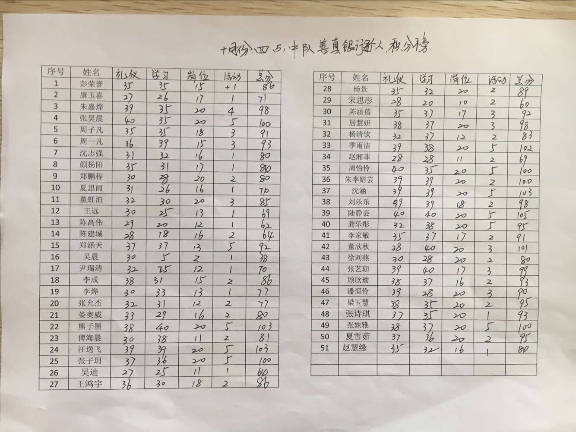 十月份.四.5.中队善真银行个人积分榜
序号 姓名 礼仪 学习 岗位 活动 总分
1 彭荣誉 35 35 15 +1 86
2 康玉喜 27 26 17 1 71
3 朱嘉烨 39 35 20 4 98
4 张昊晨 40 35 20 5 100
5 周子凡 35 35 18 3 91
6 周一凡 36 39 15 3 93
7 沈志强 31 32 16 1 80
8 颜杨阳 35 31 17 1
9 郑鹏程 30 20 2 80
10 夏思雨 31 26 16 1
11 董虹泊 32 30 20 3 85
12 王远 30 25 13 1 69
13 陈高伟 29 20 12 1 62
14 陈建城 28 18 16 2 64
15 郑涵天 37 37 13 5 92
16 吴晨 30 5 2 1 38
17 尹瑞清 32 25 12 1 70
18 李成 38 31 15 2 86
19 李烨 30 33 13 1 77
20 张允杰 32 31 12 2 77
21 晏奥威 33 29 16 2 80
22 熊子丽 38 40 20 5 103
23 傅海晨 30 38 11 2 81
24 汪逸飞 39 39 20 5 103
25 张子玥 37 36 20 5 100
26 吴迪 27 25 11 1
27 王鸿宇 36 30 18 2 86
序号 姓名 礼仪 学习 岗位 活动 总分
28 杨景 35 32 20 2 89
29 宋思彤 28 20 10 2 60
30 陈涵蓓 35 37 17 3 92
31 居慧妍 38 37 20 3 98
32 杨清钦 32 37 12 2 83
33 李雨洁 39 38 20 5 102
34 赵湘菲 28 28 11 2 69
35 周怡伶 40 35 20 5 100
36 朱李妍芸 39 39 20 2 100
37 沈涵 39 39 20 5 103
38 刘乐乐 39 18 2 98
39 陆静芸 40 40 20 5 105
40 龚乐彤 32 38 20 5 95
41 李家敏 35 37 17 2 91
42 董欣秋 38 40 20 3 101
43 徐刘慈 30 28 20 2 80
44 张艺勤 39 40 17 3 99
45 37 16 2 93
46 39 28 20 3 90
47 梁玉慧 38 35 20 2 95
48 张诗琪 37 35 20 1 93
49 38 37 20 5 100
50 夏雪茹 37 36 20 2 95
51 赵慧缘 35 32 16 1